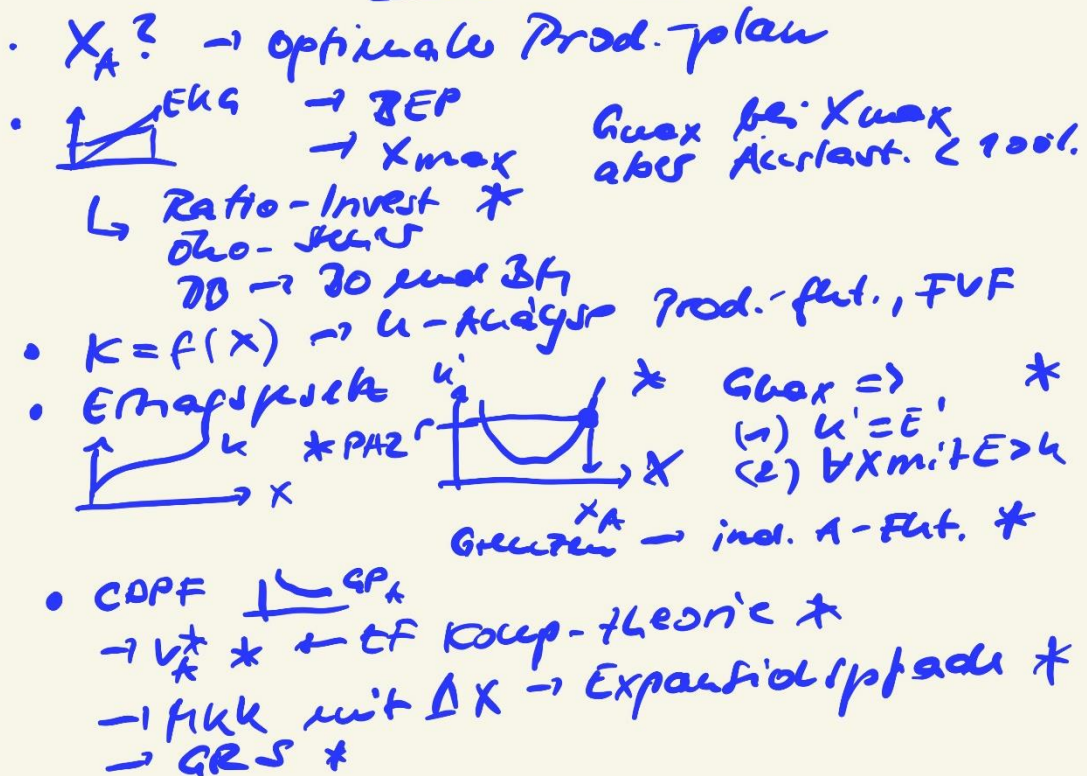 · X_A? → optimaler Prod.-plan
· EKG → BEP Gmax bei Xmax
→ Xmax aber Auslast. < 100%.
↳ Ratio-Invest *
Öko-
DB → BO und BM
• K = f(X) → K-Analyse Prod.-fkt., FVF
• Ertragsgesetz K' * Gmax => *
K * PAZ r (1) K' = E'
X X (2) ∀X mit E > K
X_A
Grenzen → ind. A-Fkt. *
• CDPF GP_A
→ V_A* * ← EF Komp-theorie *
→ MKK mit ΔX → Expansionspfade *
→ GRS *